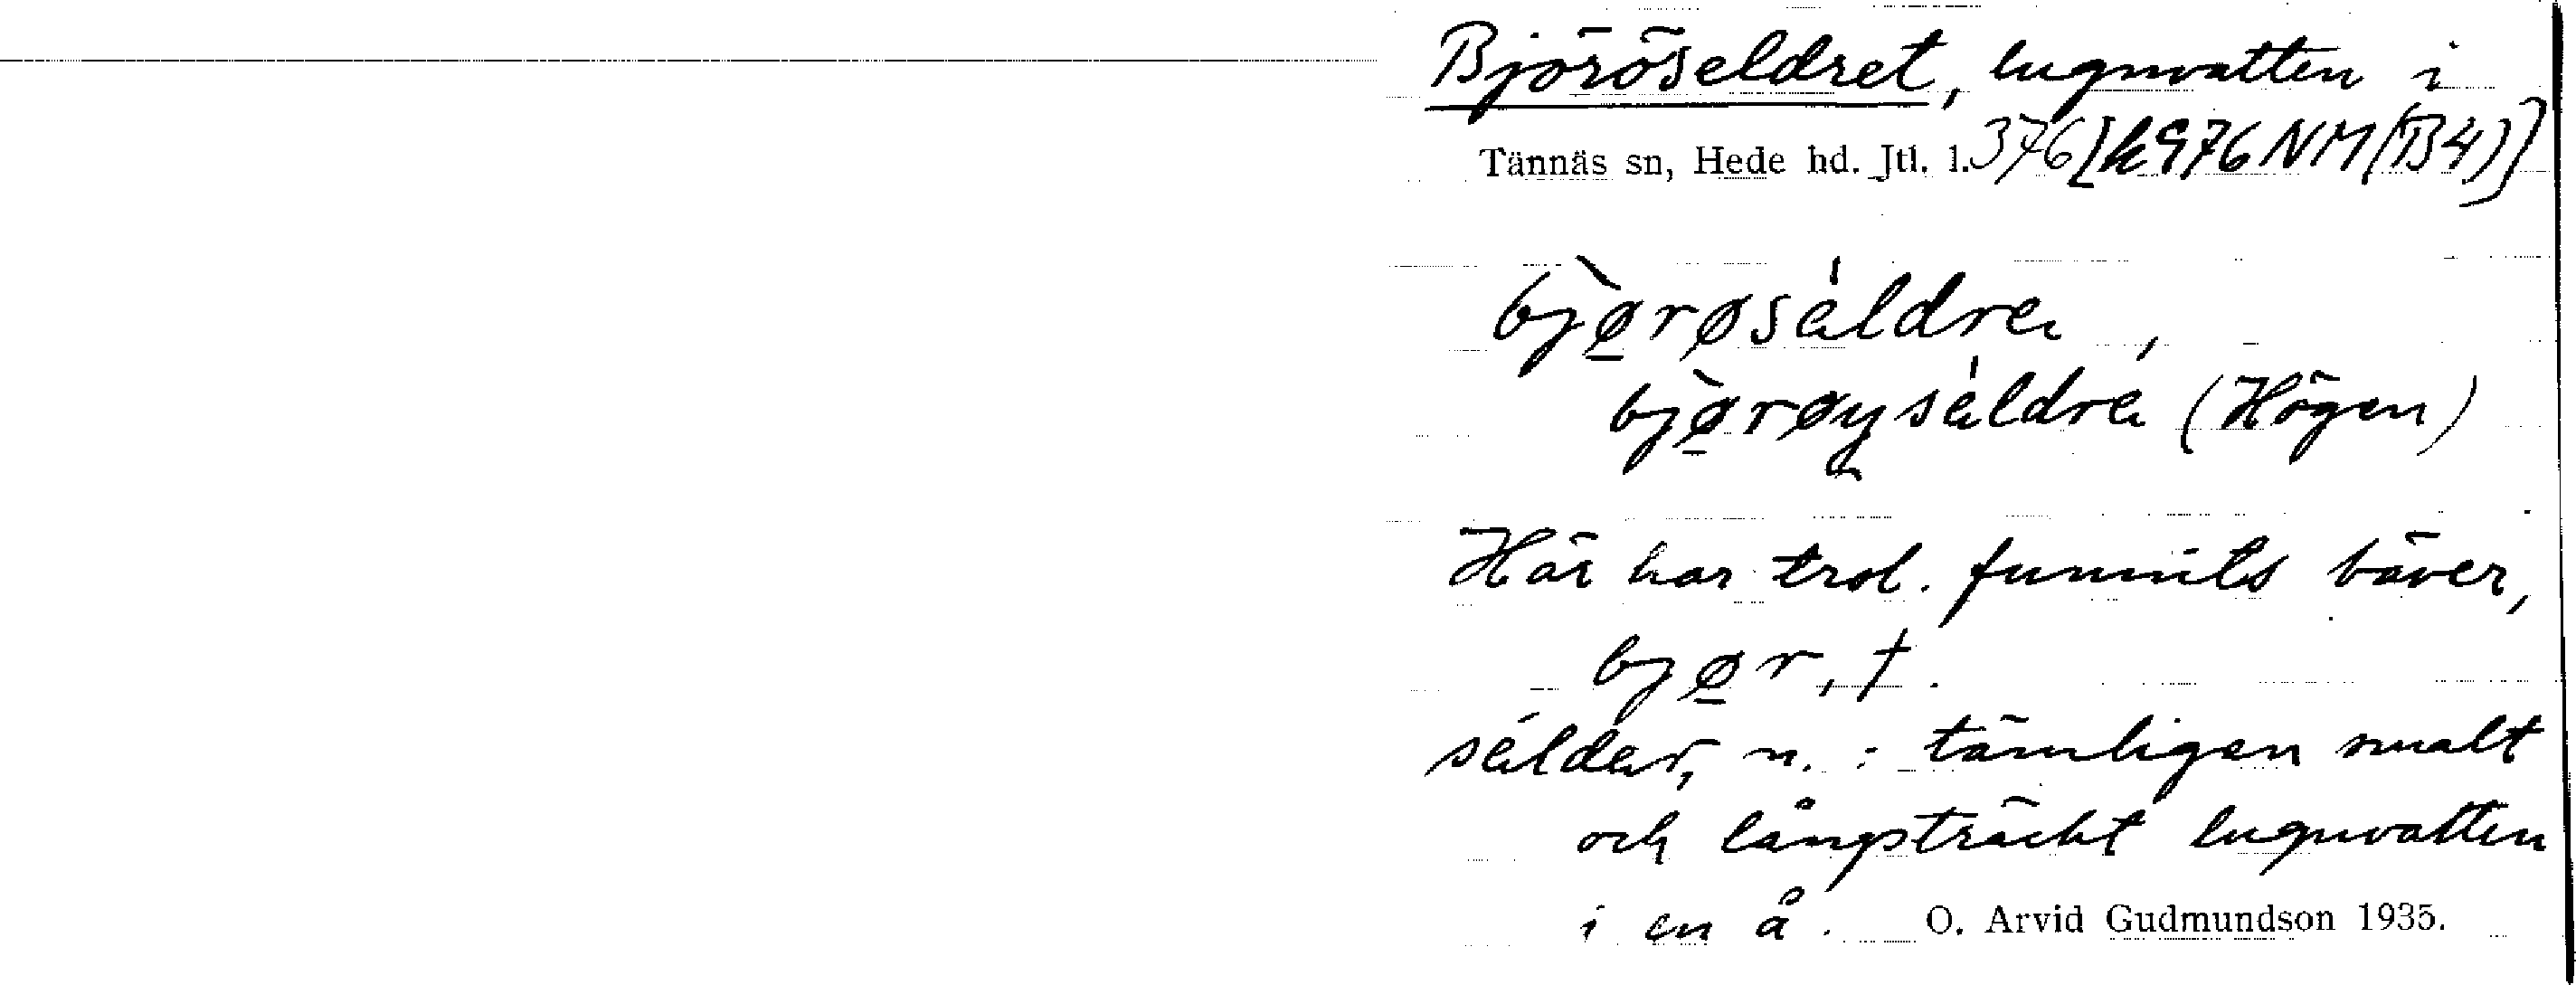 Björöseldret, lugnvatten i
Tännäs sn, Hede hd. Jtl. l. 376 [k976NM(B4)]
bjø̲̀røséldre,
bjø̲̀røyséldre (Högen)
Här har trol. funnits bäver,
bjø̲r, †.
sélder, n. : tämligen smalt
och långsträckt lugnvatten
i en å. O. Arvid Gudmundson 1935.